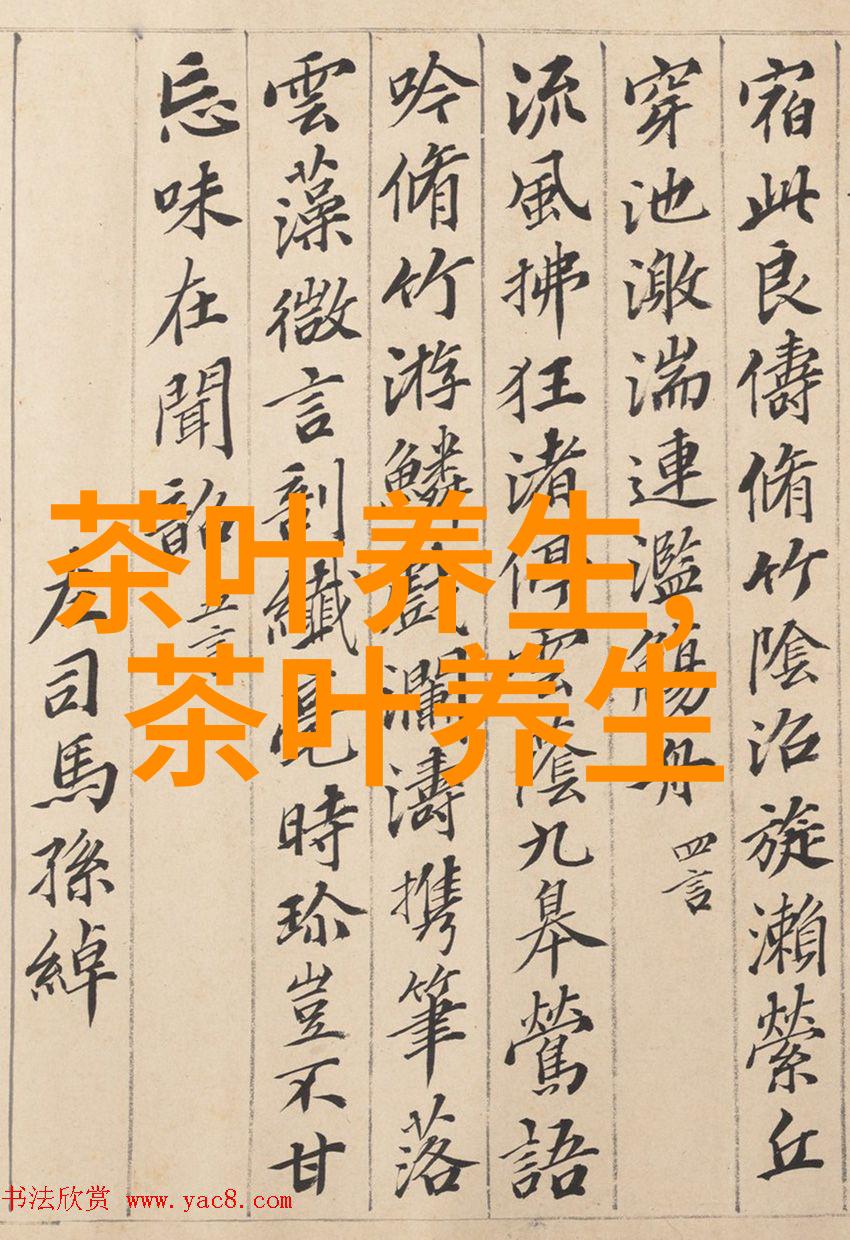 宿此良儔脩竹陰沼旋瀨縈丘
穿池激湍連濫觴舟 四言
流風拂狂渚停雲蔭九皋鶯語
吟脩竹游鱗戲瀾濤携筆落
雲藻微言剖纖毫時珍豈不甘
忘味在聞韶 五言
左司馬孫綽
茶叶养生,
茶叶养生
书法欣赏 www.yac8.com